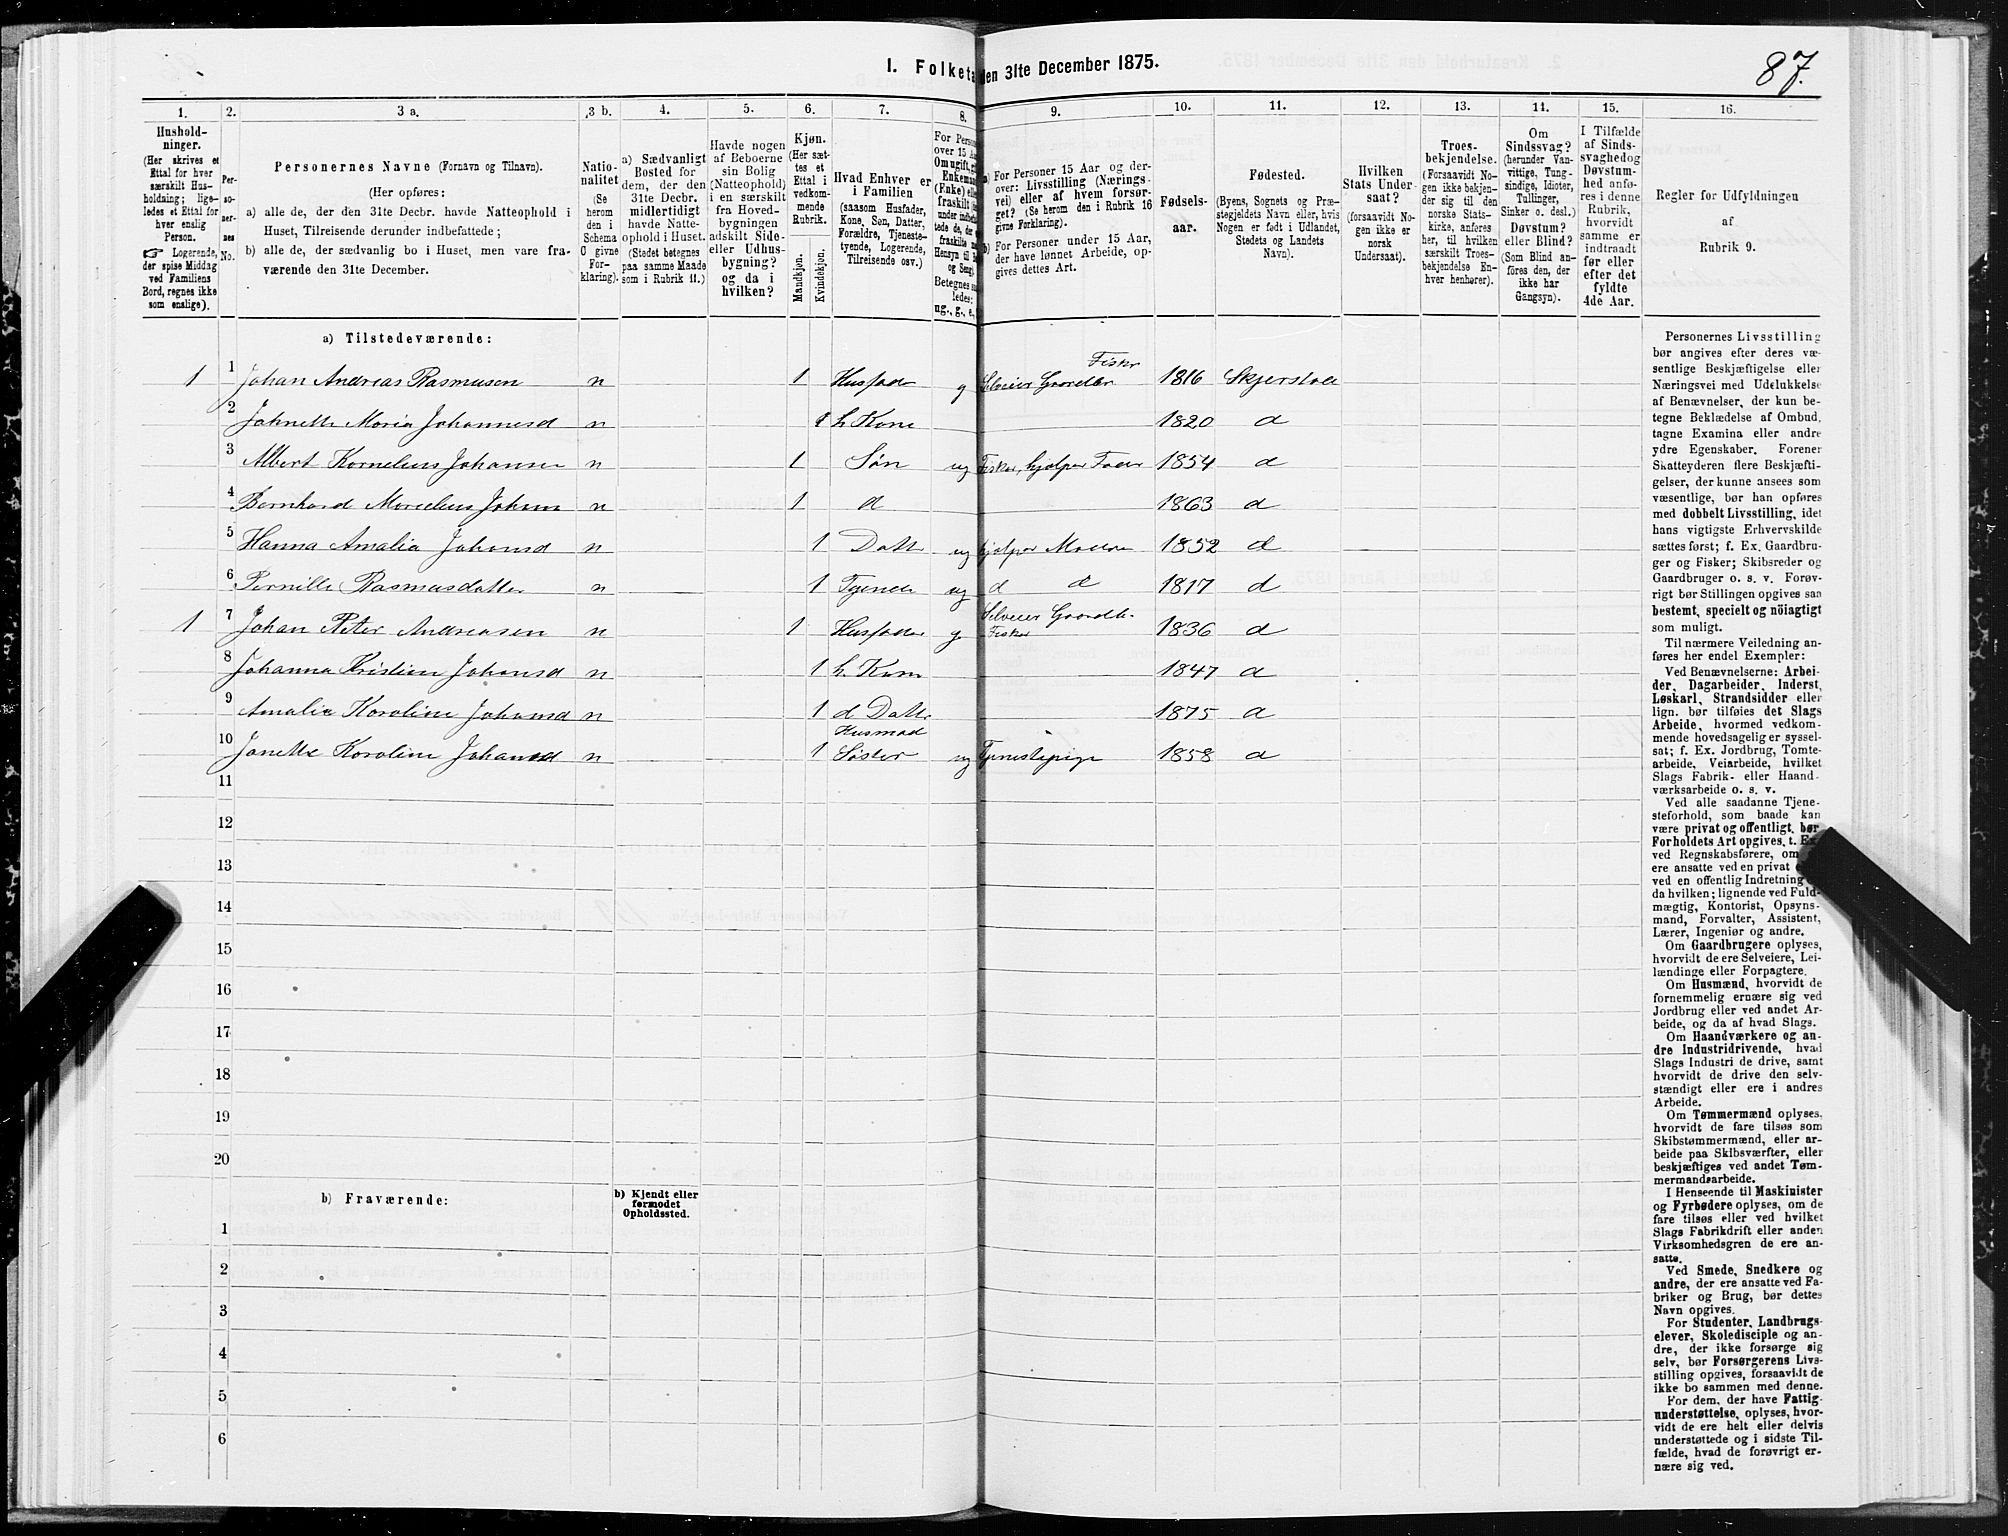 I. Folketa en 31te December 1875.
87.
1. 2. 3 a. 3 b. 4. 5. 6. 7. 8. 9. 10. 11. 12. 13. 14. 15. 16.
Hushold-
ninger.
(Her skrives et
Ettal for hver
særskilt Hus-
holdning; lige-
ledes et Ettal for
hver enslig
Person.
☞ Logerende,
der spise Middag
ved Familiens
Bord, regnes ikke
som enslige).
Per-
so-
ner-
nes
No.
Personernes Navne (Fornavn og Tilnavn).
(Her opføres:
a) alle de, der den 31te Decbr. havde Natteophold i
Huset, Tilreisende derunder indbefattede;
b) alle de, der sædvanlig bo i Huset, men vare fra-
værende den 31te December.
Natio-
nalitet
(Se
herom
den i
Schema
O givne
For-
klaring).
a) Sædvanligt
Bosted for
dem, der den
31te Decbr.
midlertidigt
havde Natte-
ophold i Huset.
(Stedet betegnes
paa samme Maade
som i Rubrik 11.)
Havde nogen
af Beboerne
sin Bolig
(Natteophold)
i en særskilt
fra Hoved-
bygningen
adskilt Side-
eller Udhus-
bygning?
og da i
hvilken?
Kjøn.
(Her sæt-
tes et
Ettal i
vedkom-
mende
Rubrik.
Mandkjøn.
Kvindekjøn.
Hvad Enhver er
i Familien
(saasom Husfader,
Kone, Søn, Datter,
Forældre, Tjeneste-
tyende, Logerende,
Tilreisende osv.)
For Perso
over 15 A
Om ugift, gif
Enkemand
(Enke) e
fraskilt
under indbe
tede de, d
fraskilte
Hensyn til B
og Seng).
Betegnes s
ledes:
ug., g., e.,
a) For Personer 15 Aar og der-
over: Livsstilling (Nærings-
vei) eller af hvem forsør-
get? (Se herom den i Rubrik 16
givne Forklaring).
b) For Personer under 15 Aar,
der have lønnet Arbeide, op-
gives dettes Art.
Fødsels-
aar.
Fødested.
(Byens, Sognets og Præ-
stegjeldets Navn eller, hvis
Nogen er født i Udlandet,
Stedets og Landets
Navn).
Hvilken
Stats Under-
saat?
(forsaavidt No-
gen ikke er
norsk
Undersaat).
Troes-
bekjendelse.
(Forsaavidt No-
gen ikke bekjen-
der sig til den
norske Stats-
kirke, anføres
her, til hvilken
særskilt Troes-
bekjendelse En-
hver henhører).
Om
Sindssvag?
(herunder Van-
vittige, Tung-
sindige, Idioter,
Tullinger,
Sinker o. desl.)
Døvstum?
eller Blind?
(Som Blind an-
føres den, der
ikke har
Gangsyn).
I Tilfælde
af Sinds-
svaghed og
Døvstum-
hed anfø-
res i denne
Rubrik,
hvorvidt
samme er
indtraadt
før eller
efter det
fyldte
4de Aar.
Regler før Udfyldningen
af
Rubrik 9.
a) Tilstedeværende:
1 1 Johan Andreas Rasmusen n 1 Husfader g Selveier Gaardbr Fisker 1816 Skjerstad
2 Johnette Maria Johannesd n 1 h. Kone 1820 d
3 Albert Kornelius Johansen n 1 Søn ug Fisker, hjælper Fader 1854 d
4 Bernhard Marselius Johans n 1 d 1863 d
5 Hanna Amalia Johansd n 1 Datter ug hjælper Moderen 1852 d
6 Pernille Rasmusdatter n 1 Tyende ug d d 1817 d
1 7 Johan Peter Andreasen n 1 Husfader g Selveier Gaardbr. Fisker 1836 d
8 Johanna Kristine Johansd n 1 h. Kone 1847 d
9 Amalie Karoline Johansd n 1 d Datter 1875 d
10 Janette Karoline Johansd n 1 Husmod Søster ug Tjenestepige 1858 d
11
12
13
14
15
16
17
18
19
20
b) Fraværende:
b) Kjendt eller
formodet
Opholdssted.
1
2
3
4
5
6
Personernes Livsstilling
bør angives efter deres væ-
sentlige Beskjæftigelse eller
Næringsvei med Udelukkelse
af Benævnelser, der kun be-
tegne Beklædelse af Ombud,
tagne Examina eller andre
ydre Egenskaber. Forener
Skatteyderen flere Beskjæfti-
gelser, der kunne ansees som
væsentlige, bør han opføres
med dobbelt Livsstilling, idet
hans vigtigste Erhvervskilde
sættes først; f. Ex. Gaardbru-
ger og Fisker; Skibsreder og
Gaardbruger o. s. v. Forøv-
rigt bør Stillingen opgives saa
bestemt, specielt og nöiagtigt
som muligt.
Til nærmere Veiledning an-
føres her endel Exempler:
Ved Benævnelserne: Arbei-
der, Dagarbeider, Inderst,
Løskarl, Strandsidder eller
lign. bør tilføies det Slags
Arbeide, hvormed vedkom-
mende hovedsagelig er syssel-
sat; f. Ex. Jordbrug, Tomte-
arbeide, Veiarbeide, hvilket
Slags Fabrik- eller Haand-
værksarbeide o. s. v.
Ved alle saadanne Tjene-
steforhold, som baade kan
være privat og offentligt, bør
Forholdets Art opgives, t. Ex.
ved Regnskabsførere, om
ere ansatte ved en privat e
ved en offentlig Indretning
da hvilken; lignende ved Fuld-
mægtig, Kontorist, Opsyns-
mand, Forvalter, Assistent,
Lærer, Ingeniør og andre.
Om Gaardbrugere oplyses,
hvorvidt de ere Selveiere, Lei-
lændinge eller Forpagtere.
Om Husmænd, hvorvidt de
fornemmelig ernære sig ved
Jordbrug eller ved andet Ar-
beide, og da af hvad Slags.
Om Haandværkere og an-
dre Industridrivende, hvad
Slags Industri de drive, samt
hvorvidt de drive den selv-
stændigt eller ere i andres
Arbeide.
Om Tømmermænd oplyses,
hvorvidt de fare tilsøs som
Skibstømmermænd, eller ar-
beide paa Skibsværfter, eller
beskjæftiges ved andet Tøm-
mermandsarbeide.
I Henseende til Maskinister
og Fyrbødere oplyses, om de
fare tilsøs eller ved hvilket
Slags Fabrikdrift eller anden
Virksomhedsgren de ere an-
satte.
Ved Smede, Snedkere og
andre, der ere ansatte ved Fa-
briker og Brug, bør dettes
Navn opgives.
For Studenter, Landbrugs-
elever, Skoledisciple og an-
dre, der ikke forsørge sig
selv, bør Forsørgerens Livs-
stilling opgives, forsaavidt de
ikke bo sammen med denne.
For dem, der have Fattig-
understøttelse, oplyses, hvor-
vidt de ere helt eller delvis
understøttede og i sidste Til-
fælde, hvad de forøvrigt er-
nære sig ved.